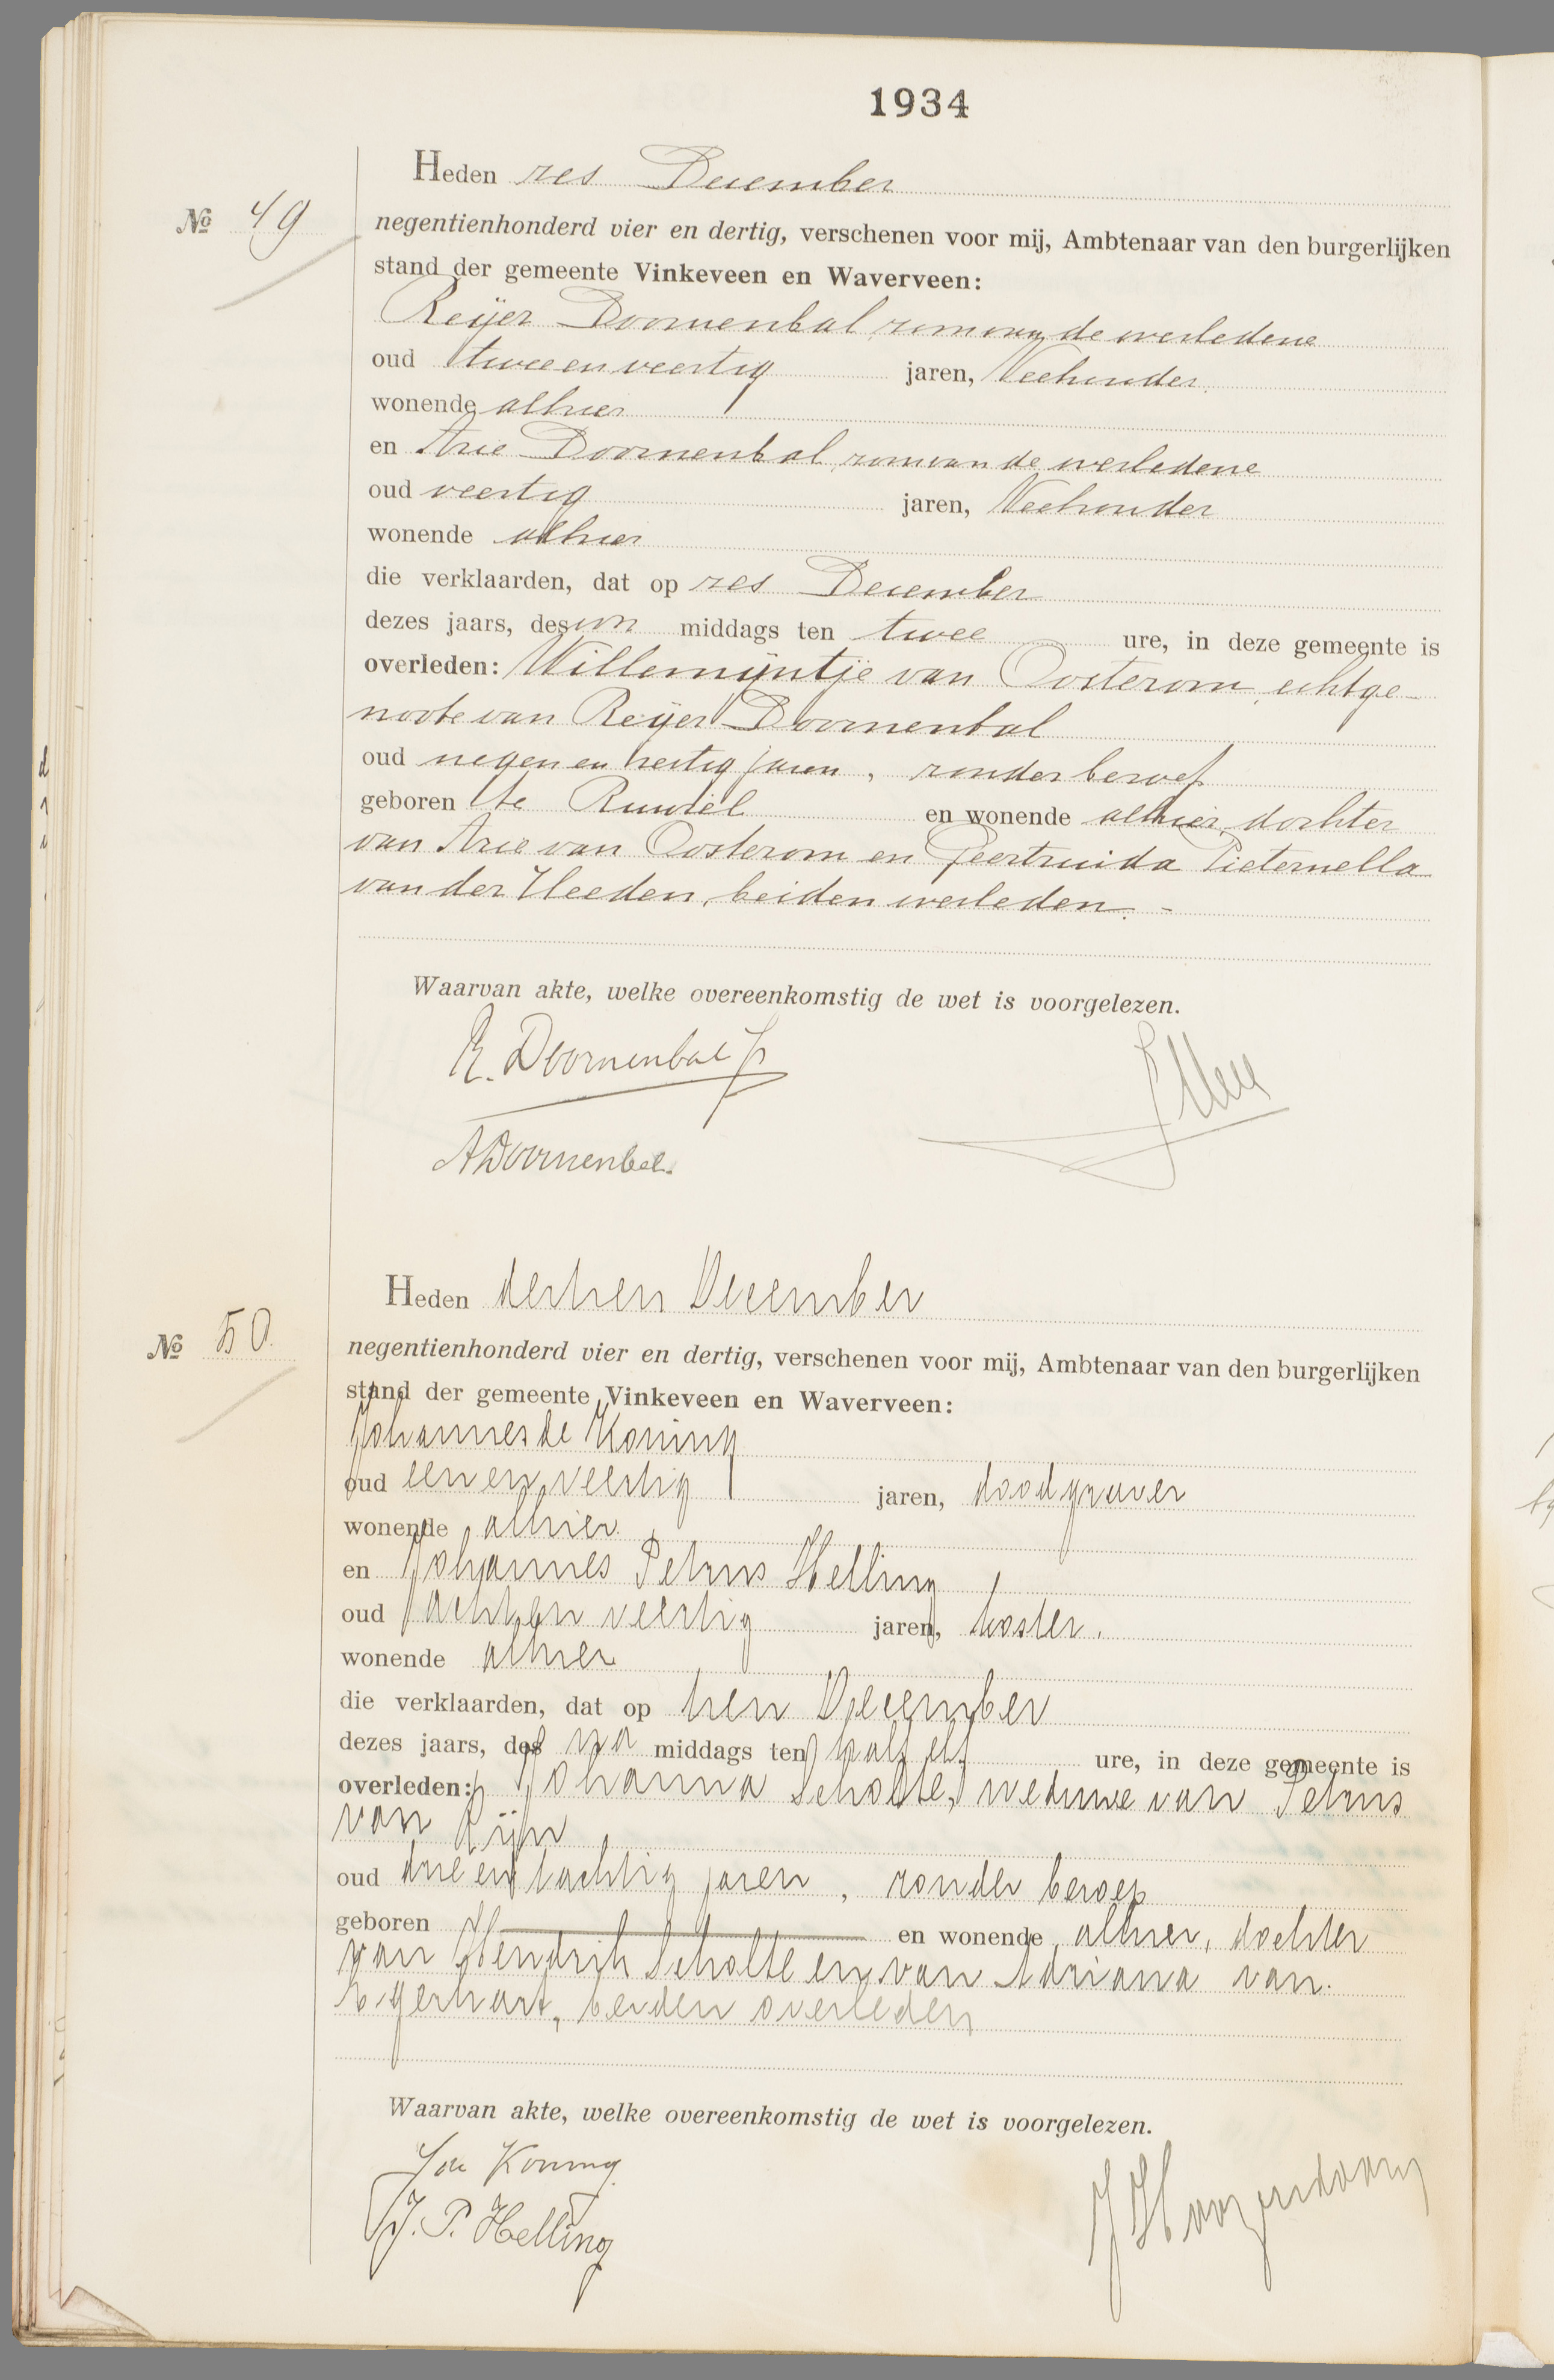 1934
Heden zes December
No 49
negentienhonderd vier en dertig, verschenen voor mij, Ambtenaar van den burgerlijken
stand der gemeente Vinkeveen en Waverveen:
Reijer Doornenbal, zoon van de overledene
oud twee en veertig jaren, Veehouder
wonende alhier
en Arie Doornenbal, zoon van de overledene
oud veertig jaren, Veehouder
wonende alhier
die verklaarden, dat op zes December
dezes jaars, des voor middags ten twee ure, in deze gemeente is
overleden: Willemijntje van Oosterom, echtge-
noote van Reijer Doornenbal
oud negen en zestig jaren, zonder beroep
geboren te Ruwiel en wonende alhier, dochter
van Arie van Oosterom en Geertruida Pieternella
van der Heeden, beiden overleden. -
Waarvan akte, welke overeenkomstig de wet is voorgelezen.
R. Doornenbal Jr
A Doornenbal.
Heden dertien December
No 50.
negentienhonderd vier en dertig, verschenen voor mij, Ambtenaar van den burgerlijken
stand der gemeente Vinkeveen en Waverveen:
Johannes de Koning
oud een en veertig jaren, doodgraver
wonende alhier.
en Johannes Petrus Helling
oud acht en veertig jaren, koster.
wonende alhier
die verklaarden, dat op tien December
dezes jaars, des na middags ten half elf ure, in deze gemeente is
overleden: Johanna Scholte, weduwe van Petrus
van Rijn
oud drie en tachtig jaren, zonder beroep
geboren en wonende alhier, dochter
van Hendrik Scholte en van Adriana van
Egerhart, beiden overleden
Waarvan akte, welke overeenkomstig de wet is voorgelezen.
J de Koning
J. P. Helling